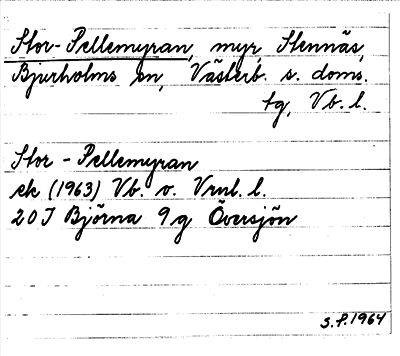 Stor-Pellemyran, myr, Stennäs,
Bjurholms sn, Västerb. s. doms.
tg, Vb. l.
Stor - Pellemyran
ek (1963) Vb. o. Vrnl. l.
20 J Björna 9 g Översjön
S.P. 1964